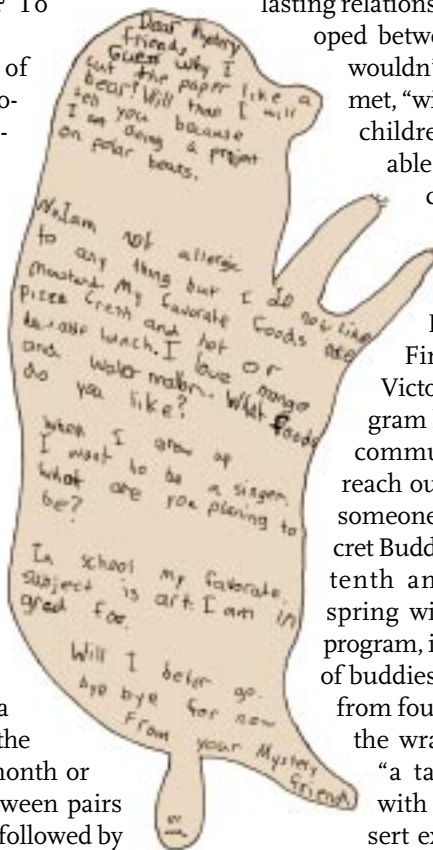 ? To
of
o-
-
a
the
month or
ween pairs
followed by
Dear Mystery
friends,
Guess why I
cut the paper like a
bear! Will than I will
tell you because
I am doing a projet
on polar bears.
No I am not allergic
to any thing but I do now like
mustard. My favorate foods are
pizza Crest and hot or
lunch. I love mango
and water malon. What foods
do you like?
When I grow up
I want to be a singer.
What are you planing to
be?
In school my favorate,
subject is art. I am in
gred foe.
Will I beter go.
bye bye for now
From your Mystery
friend
lasting relations
oped betwe
wouldn'
met, “wi
children
able
c
Fir
Victo
gram
commu
reach ou
someone
cret Budd
tenth an
spring wi
program, i
of buddies
from fou
the wra
“a ta
with
sert ex